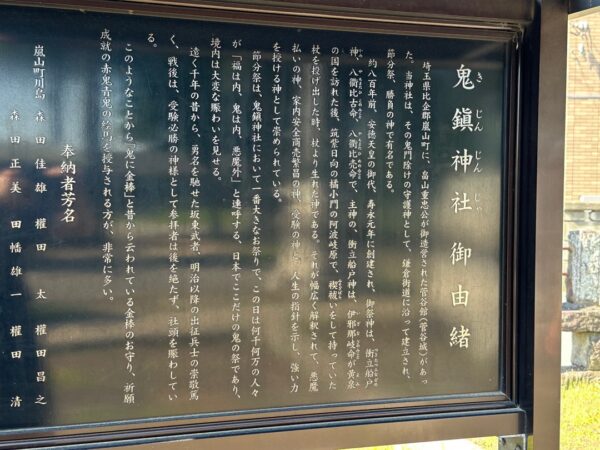 鬼鎮神社御由緒
き じん じん じゃ
埼玉県比企郡嵐山町に、畠山重忠公が御造営された菅谷館(菅谷城)があっ
た。当神社は、その鬼門除けの守護神として、鎌倉街道に沿って建立され、
節分祭、勝負の神で有名である。
約八百年前、安徳天皇の御代、寿永元年に創建され、御祭神は、衝立船戸
神、八衢比古命、八衢比売命で、主神の、衝立船戸神は、伊邪那岐命が黄泉
の国を訪れた後、筑紫日向の橘小門の阿波岐原で、禊祓いをして持っていた
杖を投げ出した時、杖より生れた神である。それが幅広く解釈されて、悪魔
払いの神、家内安全商売繁昌の神、受験の神と、人生の指針を示し、強い力
を授ける神として崇められている。
節分祭は、鬼鎮神社において一番大きなお祭りで、この日は何千何万の人々
が「福は内、鬼は内、悪魔外」と連呼する、日本でここだけの鬼の祭であり、
境内は大変な賑わいを見せる。
遠く千年の昔から、勇名を馳せた坂東武者、明治以降の出征兵士の崇敬篤
く、戦後は、受験必勝の神様として参拝者は後を絶たず、社頭を賑わしてい
る。
このようなことから「鬼に金棒」と昔から云われている金棒のお守り、祈願
成就の赤鬼青鬼の絵馬を授与される方が、非常に多い。
奉納者芳名
嵐山町川島 森田佳雄 權田 太 權田昌之
森田正美 田幡雄一 權田 清